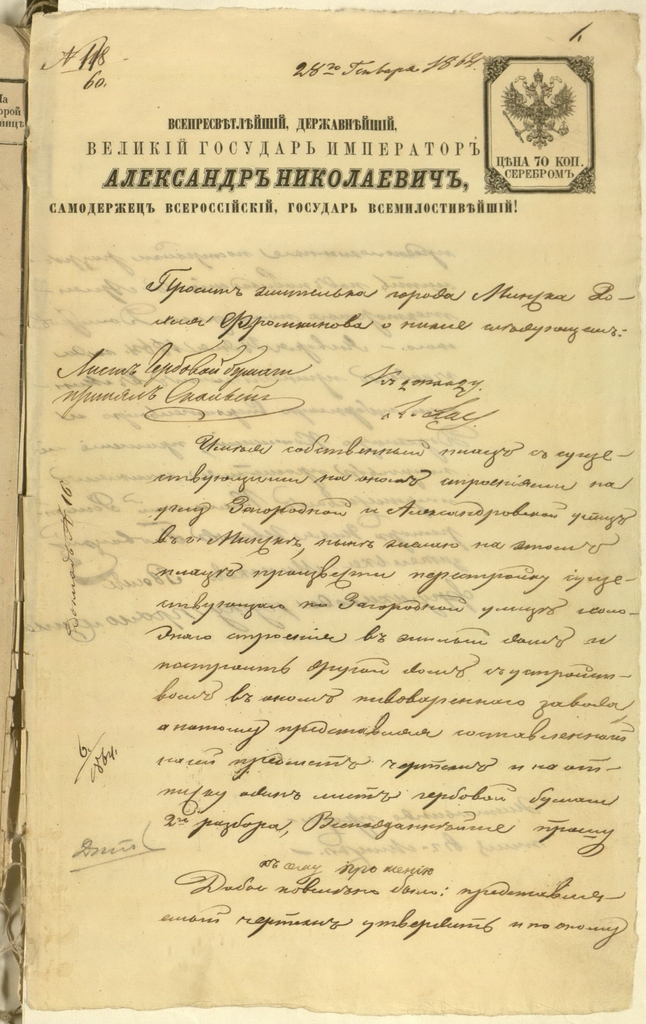 1.
№ 118
60.
28го Генваря 1864.
ВСЕПРЕСВѢТЛѢЙШІЙ, ДЕРЖАВНѢЙШІЙ,
ВЕЛИКІЙ ГОСУДАРЬ ИМПЕРАТОРЪ
АЛЕКСАНДРЪ НИКОЛАЕВИЧЪ,
САМОДЕРЖЕЦЪ ВСЕРОССІЙСКІЙ, ГОСУДАРЬ ВСЕМИЛОСТИВѢЙШІЙ!
ЦѢНА 70 КОП.
СЕРЕБРОМЪ
Проситъ жителька города Минска
Фрумкинова о ниже слѣдующемъ:
Листъ Гербовой бумаги
принялъ
Къ докладу.
Имѣя собственный плацъ съ суще-
ствующими на ономъ строеніями на
углу Загородной и Александровской улицъ
въ г. Минскѣ, нынѣ желаю на этомъ
плацѣ произвести перестройку суще-
ствующаго по Загородной улицѣ холо-
днаго строенія въ жилый домъ и
построить другой домъ съ устройст-
вомъ въ ономъ пивовареннаго завода,
а потому представляя составленный
на сей предметъ чертежъ и на от-
пуску одинъ листъ гербовой бумаги
2го разбора, Всеподданнѣйше прошу
къ сему прошенію
Дабы повелѣно было: представляе-
мый чертежъ утвердить и по оному
6
1864.